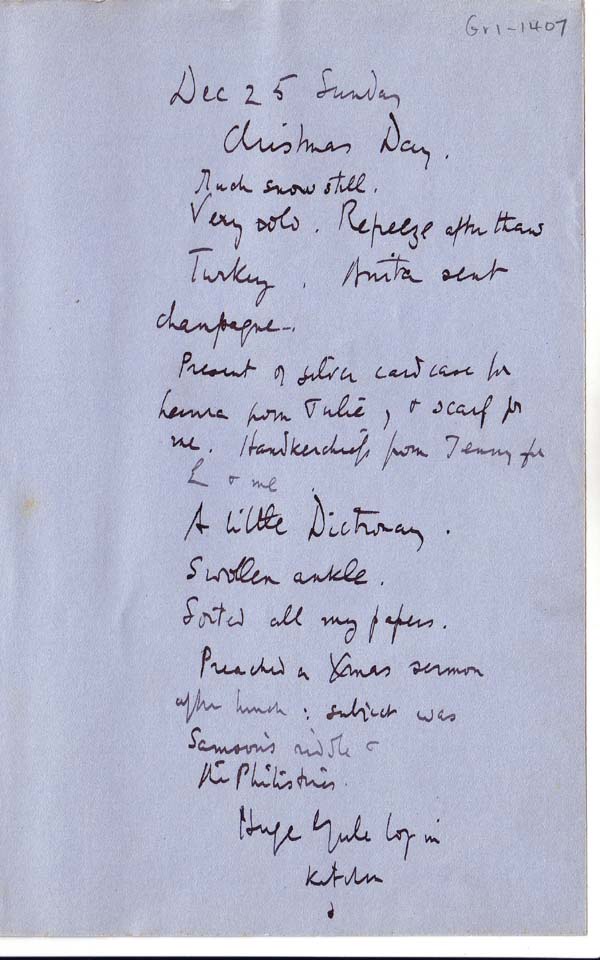 Gr1-1407
Dec 25 Sunday
Christmas Day.
Much snow still.
Very cold. Refreeze after thaw
Turkey. Anita sent
champagne.
Present of silver card case for
from Julie, & scarf for
me. Handkerchiefs from Jenny for
L & me
A little Dictionary.
Swollen ankle.
Sorted all my papers.
Preached a Xmas sermon
after lunch: subject was
Samson's riddle &
the Philistines.
Huge Yule log in
kitchen